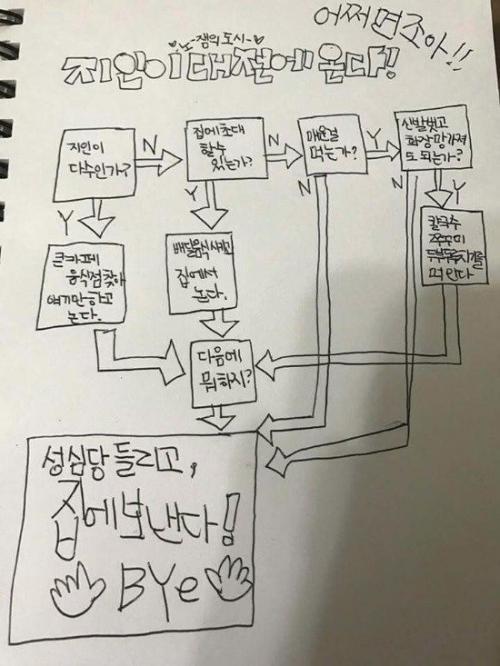 어쩌면조아!!
노-잼의 도시-
지인이 대전에 온다!
지인이
다수인가?
N
Y
집에 초대
할수
있는가?
N
Y
매운걸
먹는가?
Y
N
신발벗고
화장망가져
도 되는가?
N
Y
큰카페
음식점찾아
얘기만하고
논다.
배달음식시키고
집에서
논다.
칼국수
쭈꾸미
두부두루치기를
먹인다
다음에
뭐하지?
성심당 들리고,
집에보낸다!
BYe